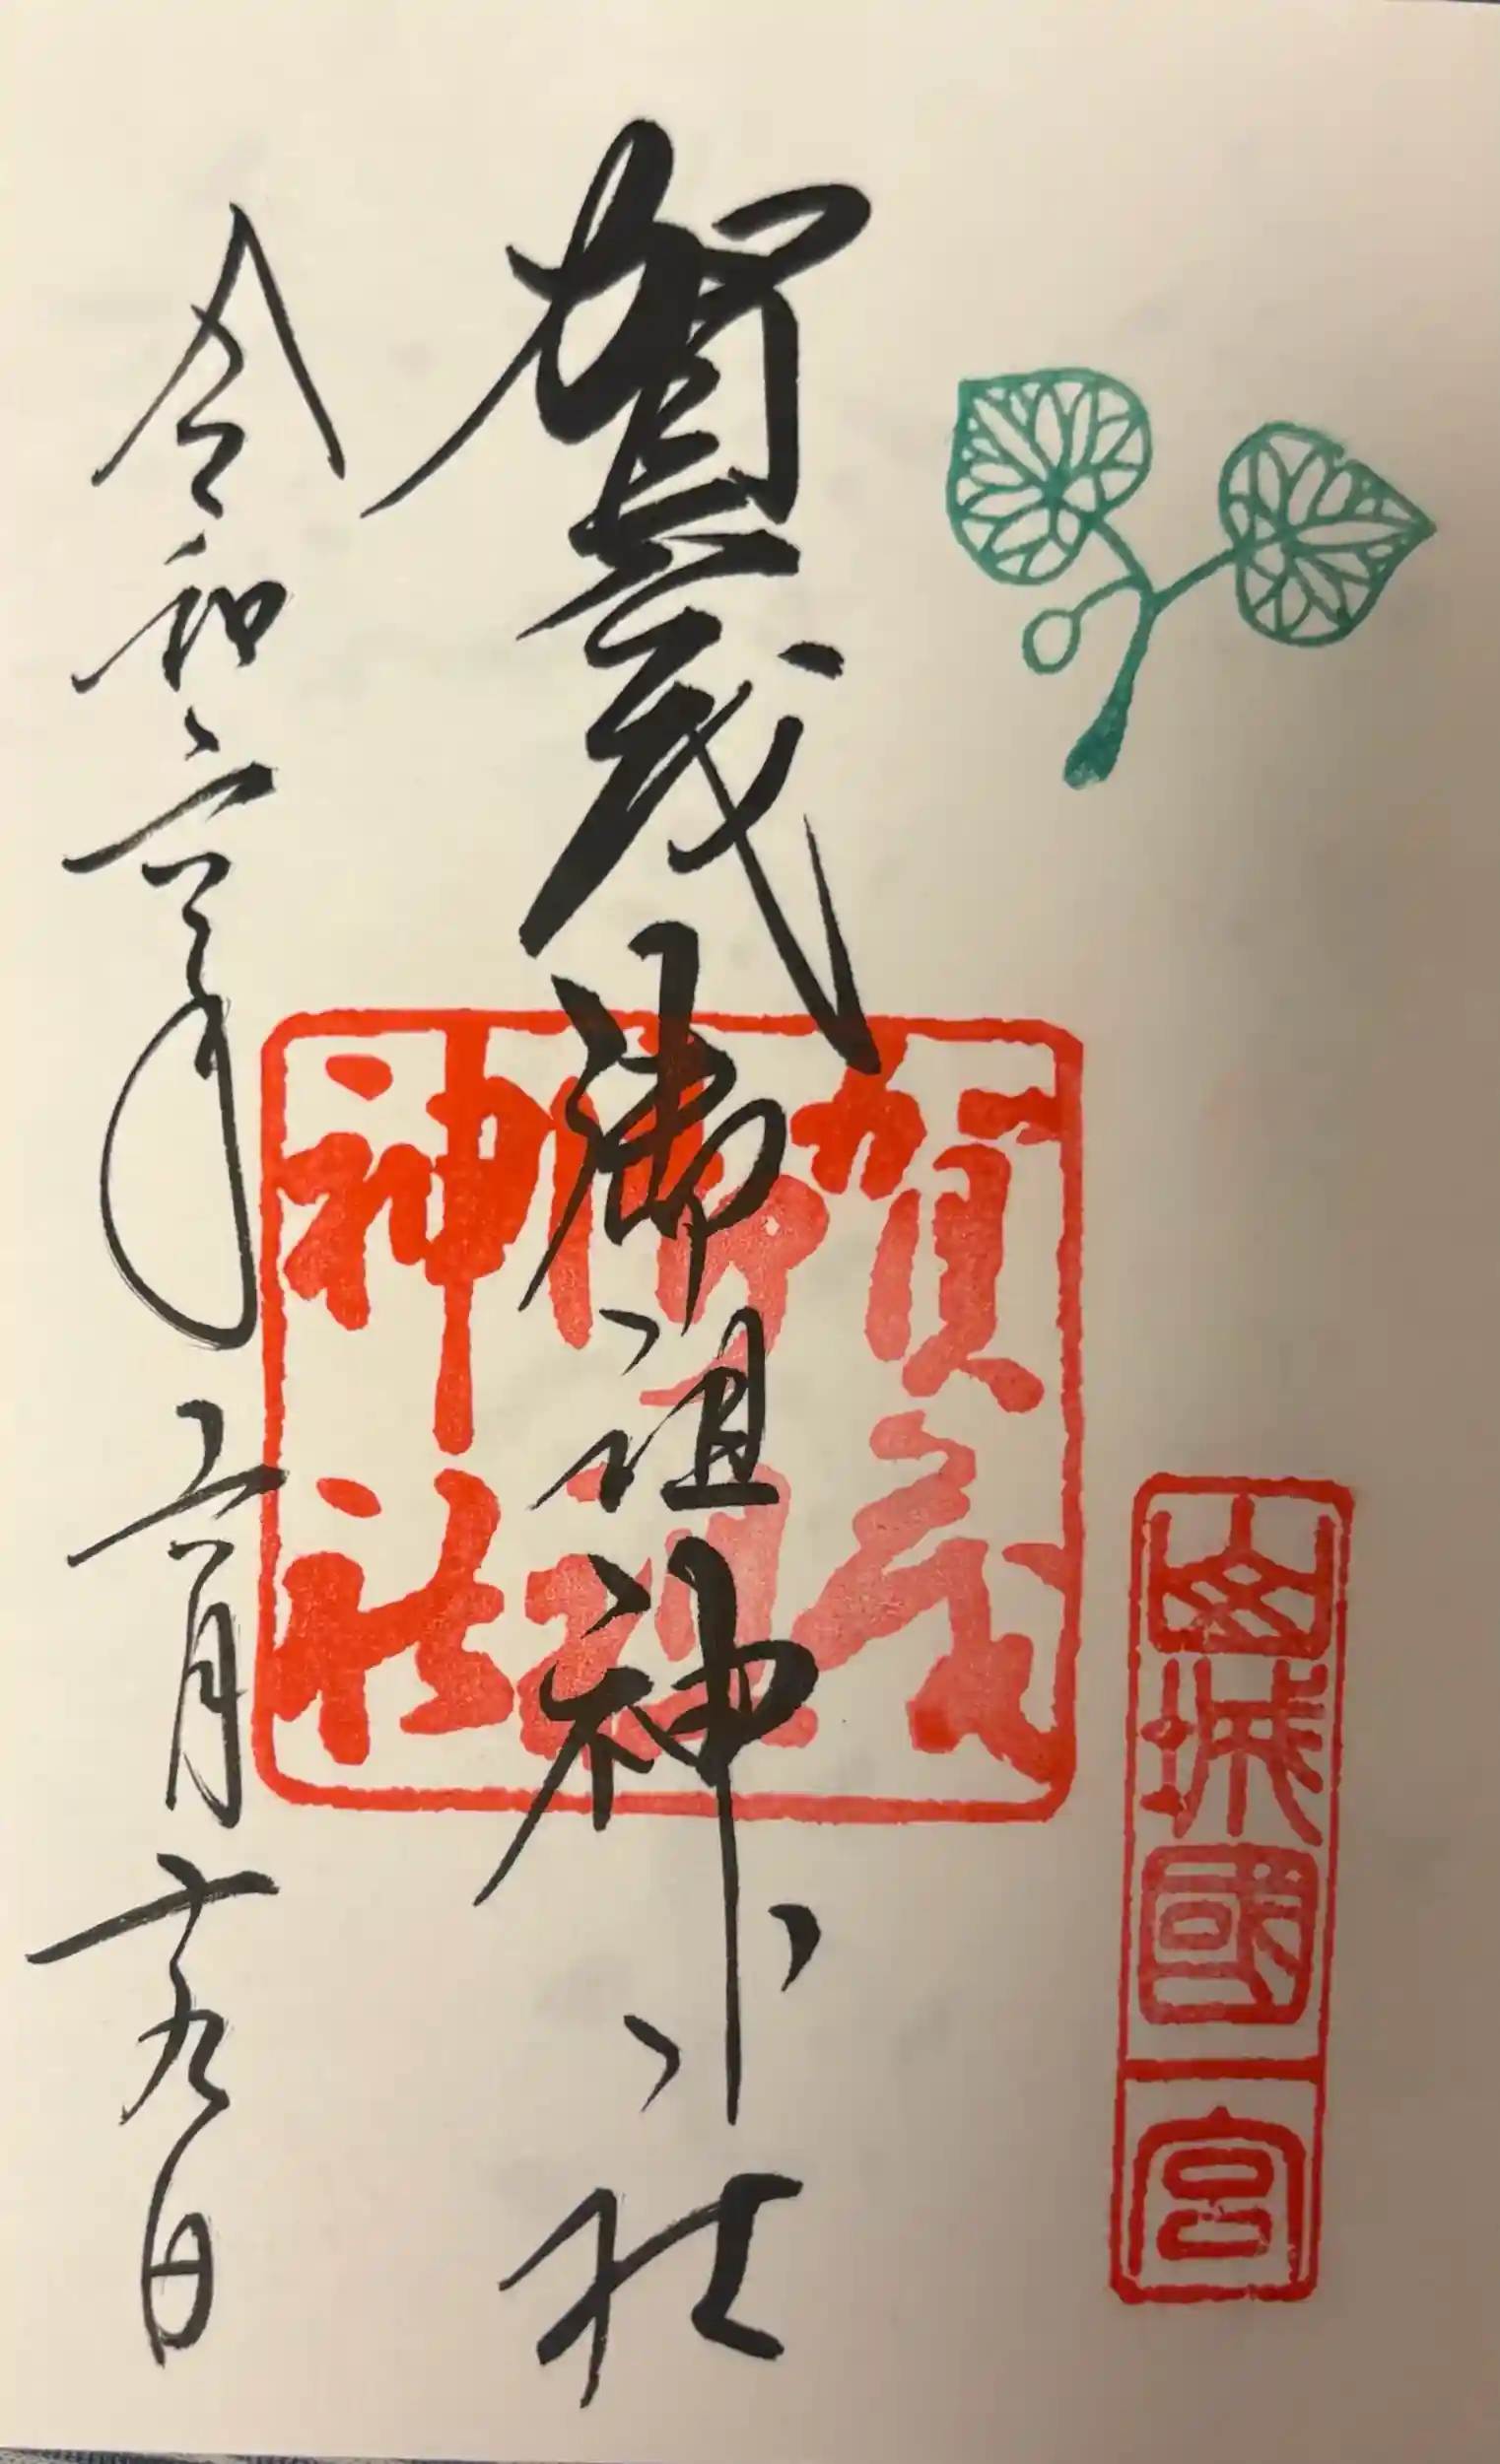 山城國一宮
賀茂御祖神社
賀茂
御祖
神社
令和六年六月十九日